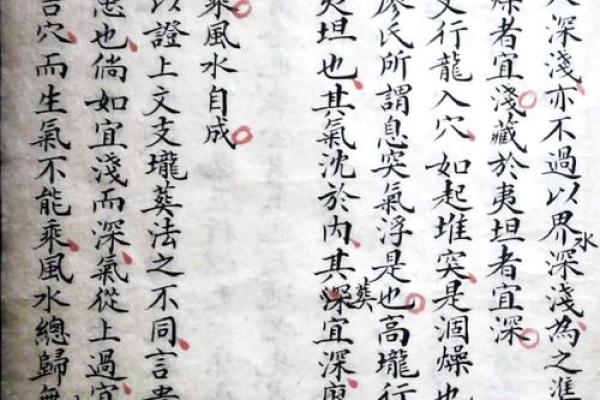 深淺亦不過以界水深淺為之準
燥者宜淺藏於夷坦者宜深
行龍入穴如起堆突是涸燥也
廖氏所謂息突氣浮是也高壠行
夷坦也其氣沈於內其葬宜深
乘風水自成
以證上文支壠葬法之不同言貴
也倘如宜淺而深氣從上過宜
言穴而生氣不能乘風水總歸無